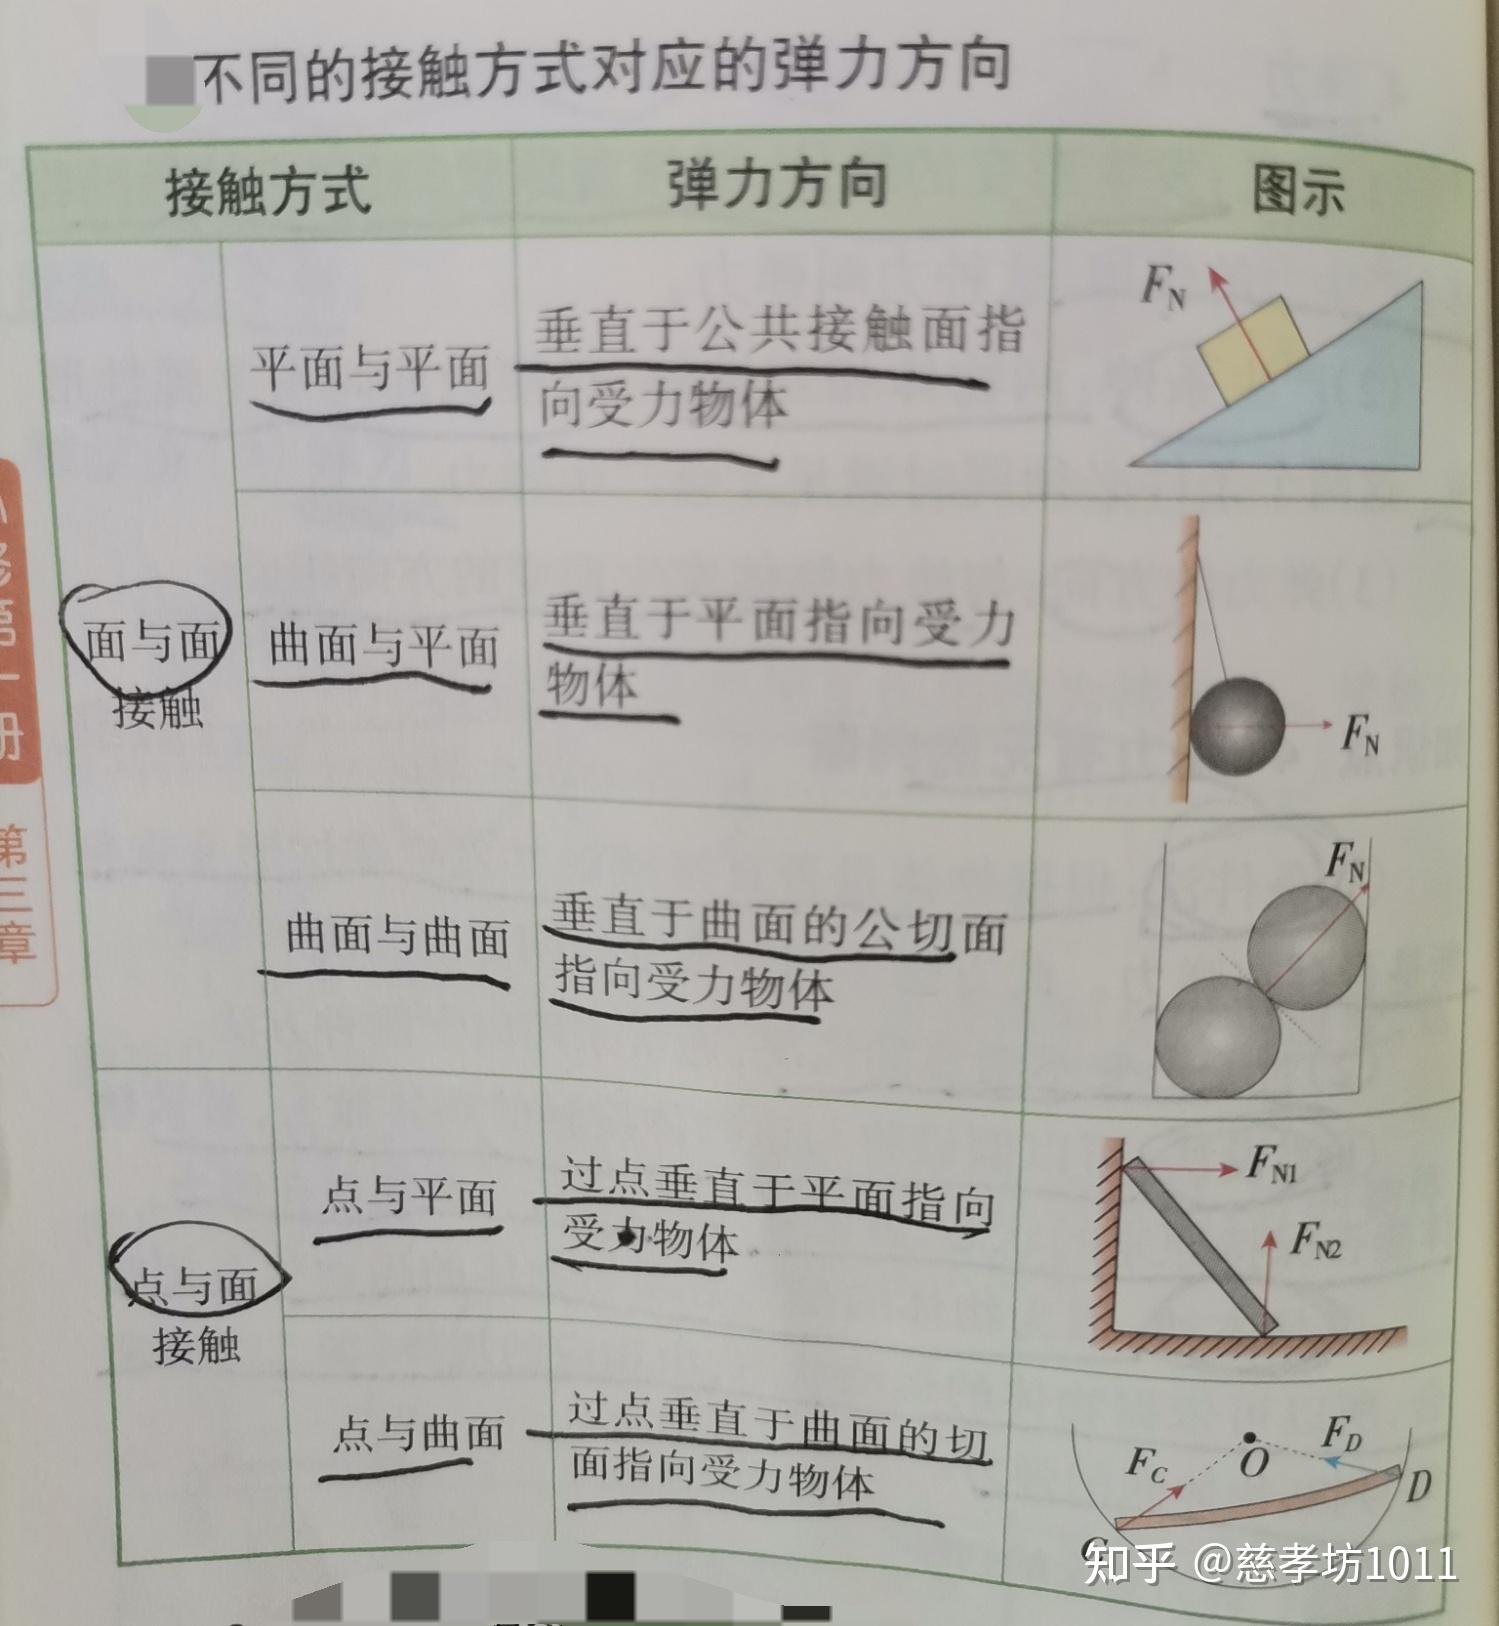 不同的接触方式对应的弹力方向
接触方式
弹力方向
图示
面与面
接触
平面与平面
垂直于公共接触面指
向受力物体
F_N
曲面与平面
垂直于平面指向受力
物体
F_N
曲面与曲面
垂直于曲面的公切面
指向受力物体
F_N
点与面
接触
点与平面
过点垂直于平面指向
受力物体
F_N1
F_N2
点与曲面
过点垂直于曲面的切
面指向受力物体
F_C
O
F_D
D
修
第
一
册
第
三
章
知乎 @慈孝坊1011